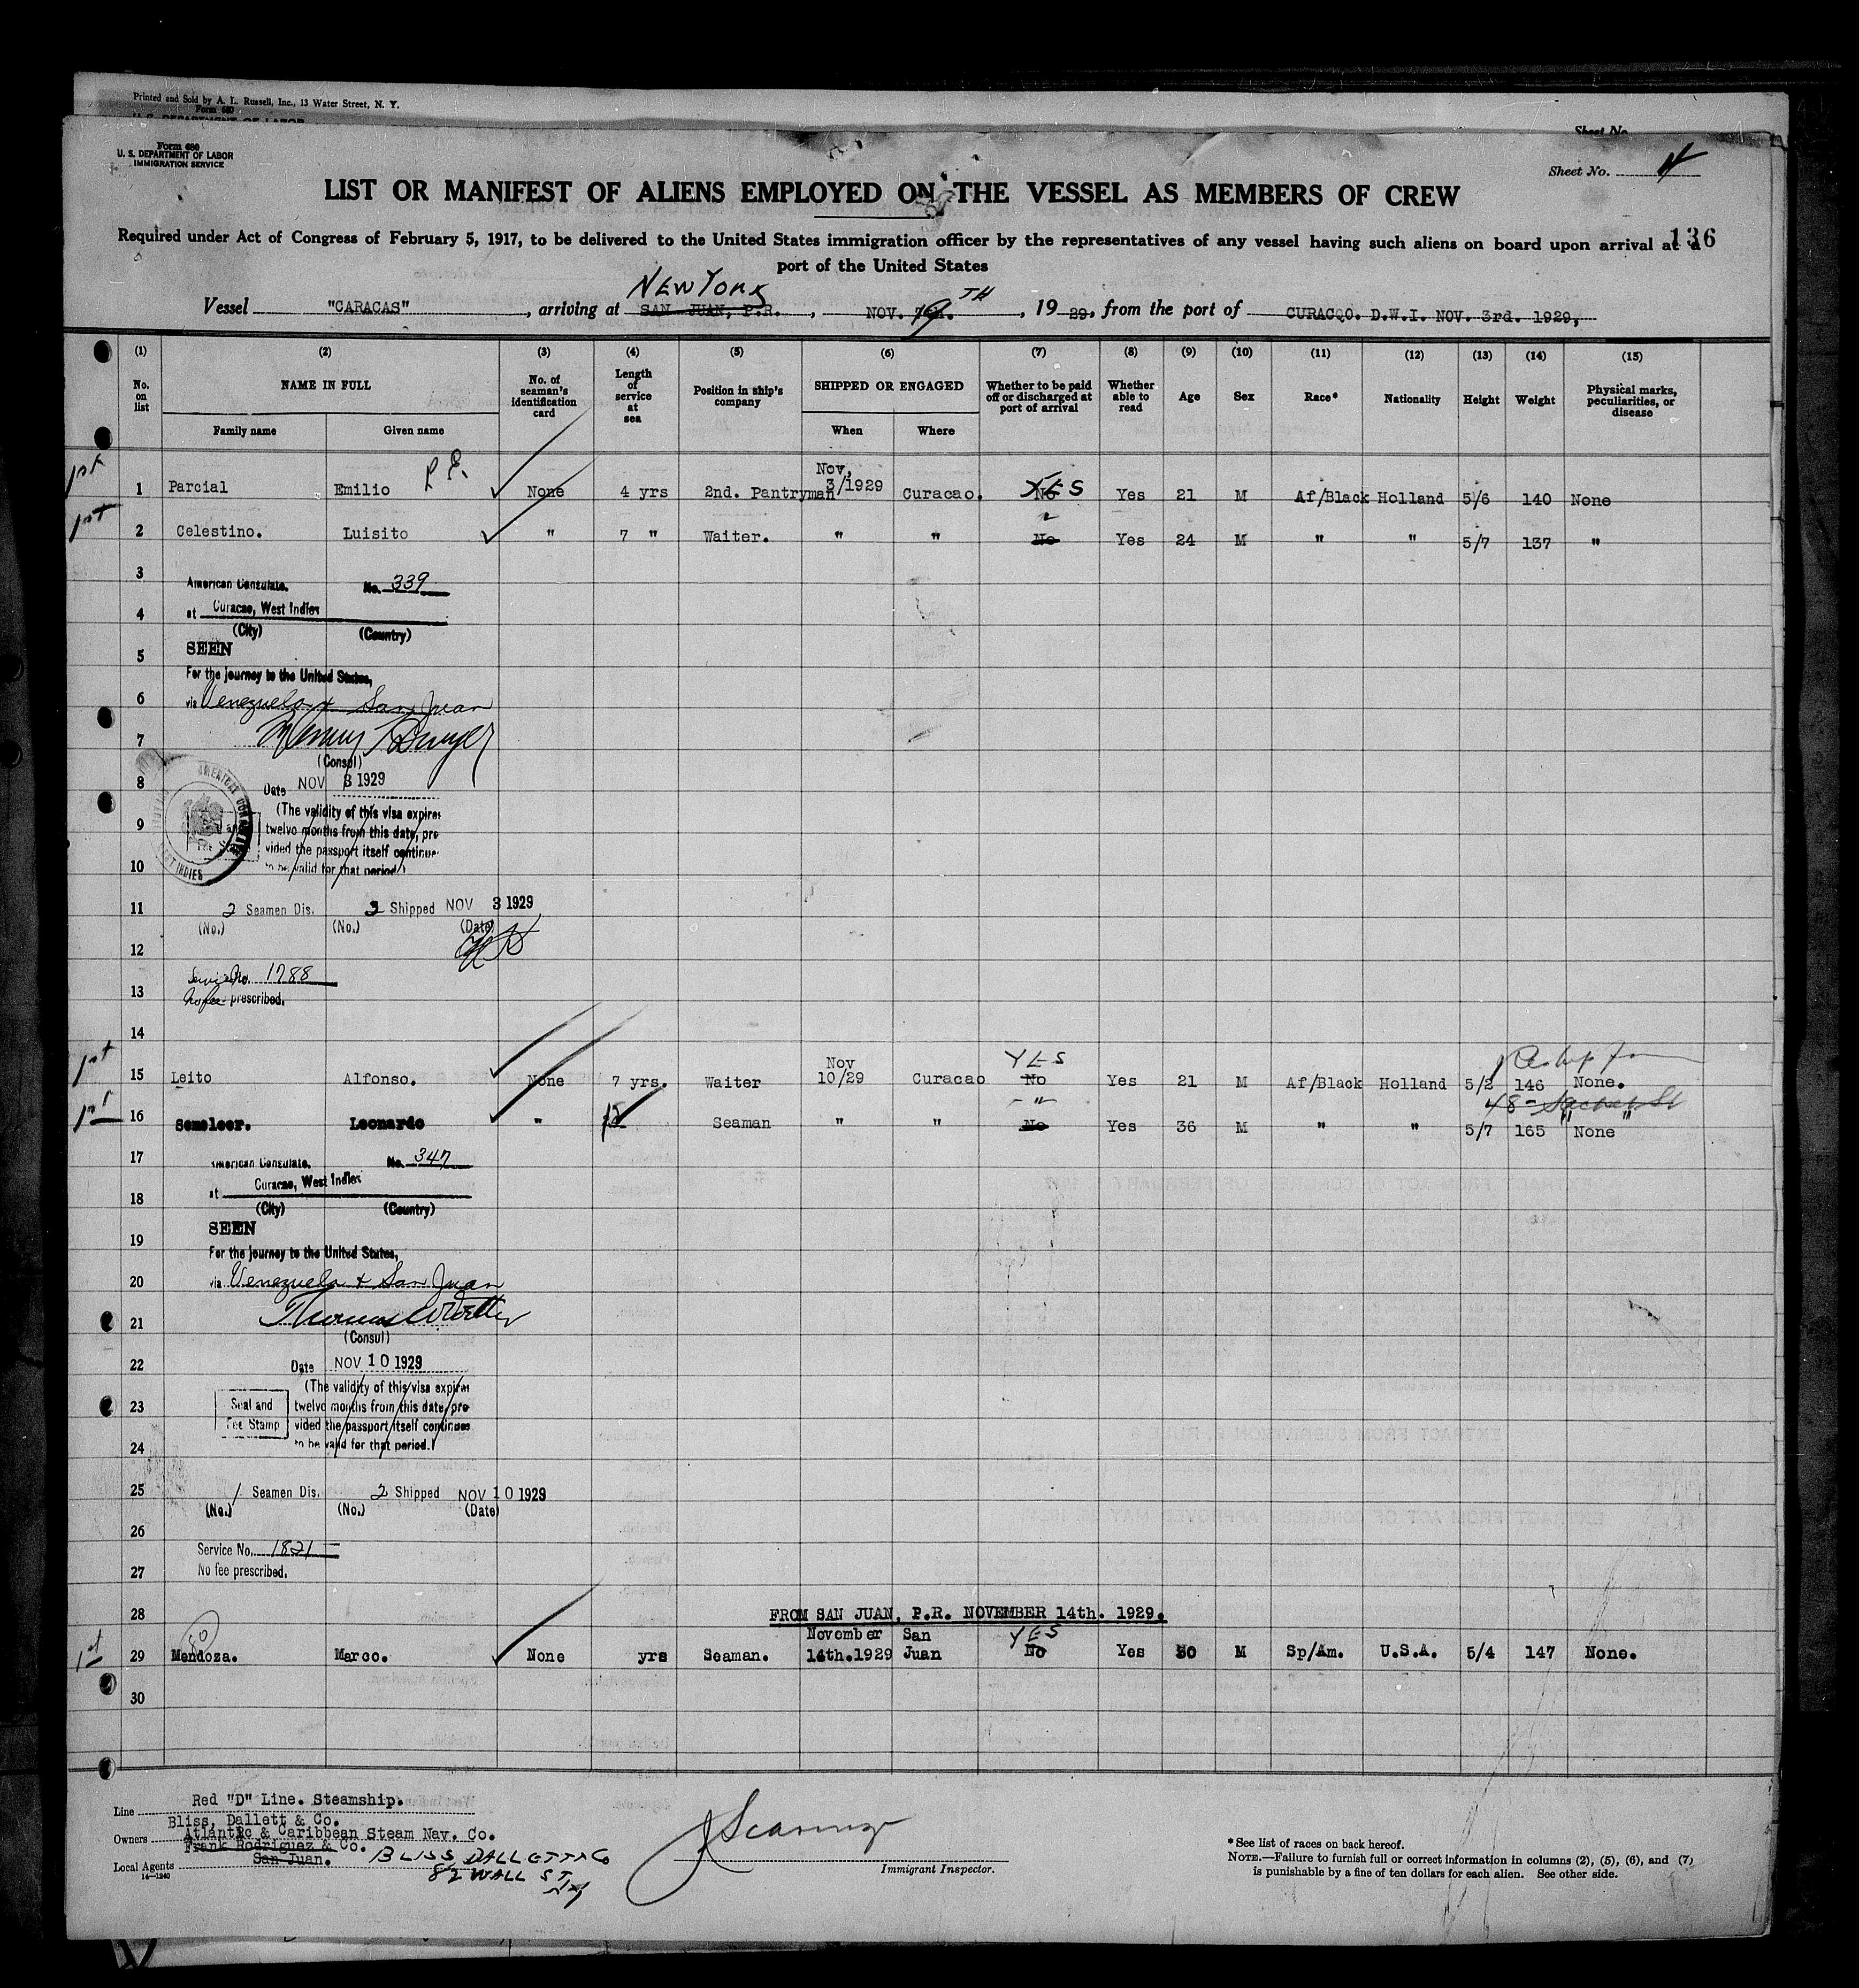 Printed and Sold by A. L. Russell, Inc., 13 Water Street, N. Y.
Form 680
U. S. DEPARTMENT OF LABOR
Sheet No.
Form 680
U. S. DEPARTMENT OF LABOR
IMMIGRATION SERVICE
Sheet No. 4
LIST OR MANIFEST OF ALIENS EMPLOYED ON THE VESSEL AS MEMBERS OF CREW
Required under Act of Congress of February 5, 1917, to be delivered to the United States immigration officer by the representatives of any vessel having such aliens on board upon arrival at a
136
port of the United States
NEW YORK
Vessel "CARACAS", arriving at SAN JUAN, P.R., NOV. 19TH, 1929, from the port of CURACQO. D.W.I. NOV. 3rd. 1929,
(1) (2) (3) (4) (5) (6) (7) (8) (9) (10) (11) (12) (13) (14) (15)
No. on list NAME IN FULL No. of seaman's identification card Length of service at sea Position in ship's company SHIPPED OR ENGAGED Whether to be paid off or discharged at port of arrival Whether able to read Age Sex Race* Nationality Height Weight Physical marks, peculiarities, or disease
Family name Given name When Where
1st 1 Parcial Emilio P.E. None 4 yrs 2nd. Pantryman Nov, 3/1929 Curacao. No YES Yes 21 M Af/Black Holland 5/6 140 None
1st 2 Celestino. Luisito " 7 " Waiter. " " No " Yes 24 M " " 5/7 137 "
3
American Consulate, No. 339
4 at Curacao, West Indies
(City) (Country)
5 SEEN
For the journey to the United States,
6 via Venezuela & San Juan
7
(Consul)
8 Date NOV 3 1929
(The validity of this visa expires
9 twelve months from this date, pro
vided the passport itself continues
10 to be valid for that period.)
11 2 Seamen Dis. 2 Shipped NOV 3 1929
(No.) (No.) (Date)
12
Service No. 1788
13 No fee prescribed.
14
1st 15 Leito Alfonso. None 7 yrs. Waiter Nov 10/29 Curacao YES No Yes 21 M Af/Black Holland 5/2 146 None.
1st 16 Semeleer. Leonardo " Seaman " " " No Yes 36 M " " 5/7 165 None
17 American Consulate, No. 347
18 at Curacao, West Indies
(City) (Country)
19 SEEN
For the journey to the United States,
20 via Venezuela & San Juan
21
(Consul)
22 Date NOV 10 1929
(The validity of this visa expires
23 Seal and twelve months from this date, pro
Fee Stamp vided the passport itself continues
24 to be valid for that period.)
25 1 Seamen Dis. 2 Shipped NOV 10 1929
(No.) (No.) (Date)
26
Service No. 1821
27 No fee prescribed.
28 FROM SAN JUAN, P.R. NOVEMBER 14th. 1929.
1st 29 Mendoza. Marco. None yrs Seaman. November 14th.1929 San Juan YES No Yes 30 M Sp/Am. U.S.A. 5/4 147 None.
30
Line Red "D" Line. Steamship.
Bliss, Dallett & Co.
Owners Atlantic & Caribbean Steam Nav. Co.
Frank Rodriguez & Co.
Local Agents San Juan. BLISS DALLETT & Co
82 WALL ST
NY
14—1240
Immigrant Inspector.
* See list of races on back hereof.
NOTE.—Failure to furnish full or correct information in columns (2), (5), (6), and (7)
is punishable by a fine of ten dollars for each alien. See other side.